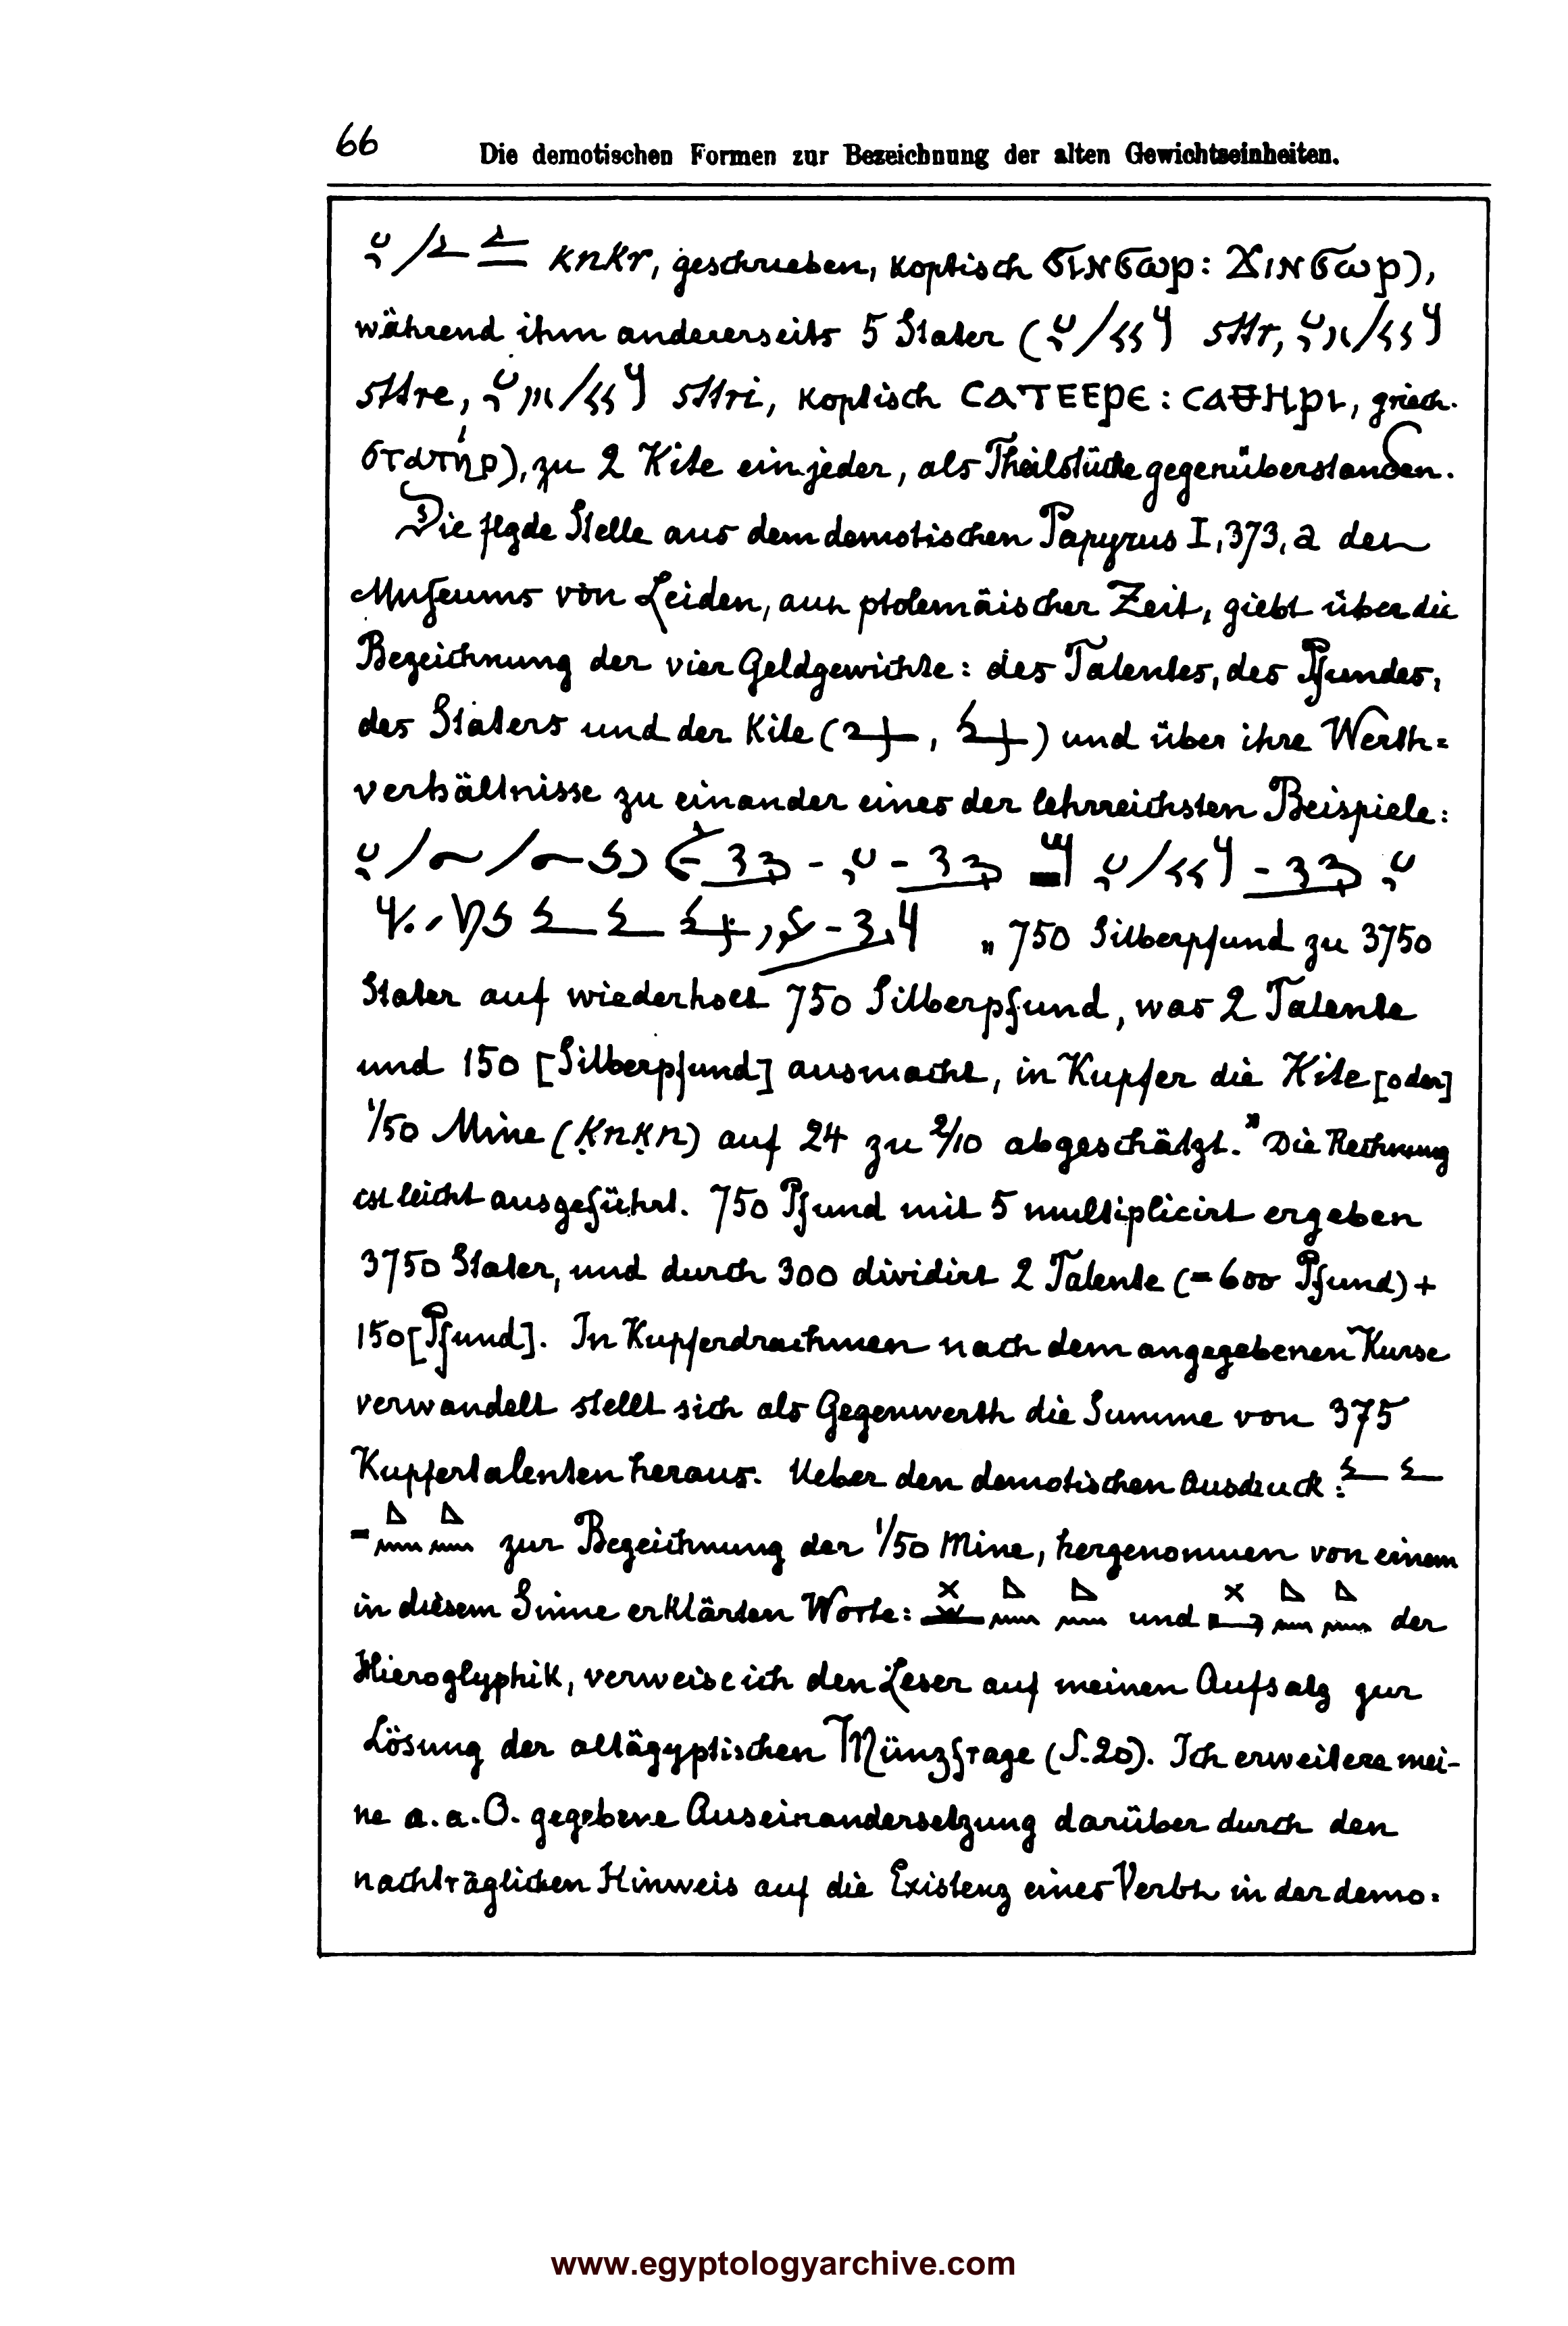 66 Die demotischen Formen zur Bezeichnung der alten Gewichtseinheiten.
knkr, geschrieben, koptisch ϭⲓⲛϭⲱⲣ: ϫⲓⲛϭⲱⲣ),
während ihm andererseits 5 Stater ( sttr,
sttre, sttri, koptisch ⲥⲁⲧⲉⲉⲣⲉ: ⲥⲁⲑⲏⲣⲓ, griech.
στατήρ), zu 2 Kite ein jeder, als Theilstücke gegenüberstanden.
Die flgde Stelle aus dem demotischen Papyrus I, 373, a des
Museums von Leiden, aus ptolemäischer Zeit, giebt über die
Bezeichnung der vier Geldgewichte: des Talentes, des Pfundes,
des Staters und der Kite ( , ) und über ihre Werth=
verhältnisse zu einander eines der lehrreichsten Beispiele:
„750 Silberpfund zu 3750
Stater auf wiederholt 750 Silberpfund, was 2 Talente
und 150 [Silberpfund] ausmacht, in Kupfer die Kite [oder]
1/50 Mine (ḳnḳn) auf 24 zu 2/10 abgeschätzt.” Die Rechnung
ist leicht ausgeführt. 750 Pfund mit 5 multiplicirt ergeben
3750 Stater, und durch 300 dividirt 2 Talente (= 600 Pfund) +
150 [Pfund]. In Kupferdrachmen nach dem angegebenen Kurse
verwandelt stellt sich als Gegenwerth die Summe von 375
Kupfertalenten heraus. Ueber den demotischen Ausdruck:
= zur Bezeichnung der 1/50 Mine, hergenommen von einem
in diesem Sinne erklärten Worte: und der
Hieroglyphik, verweise ich den Leser auf meinen Aufsatz zur
Lösung der altägyptischen Münzfrage (S. 20). Ich erweitere mei-
ne a. a. O. gegebene Auseinandersetzung darüber durch den
nachträglichen Hinweis auf die Existenz eines Verbs in der demo=
www.egyptologyarchive.com